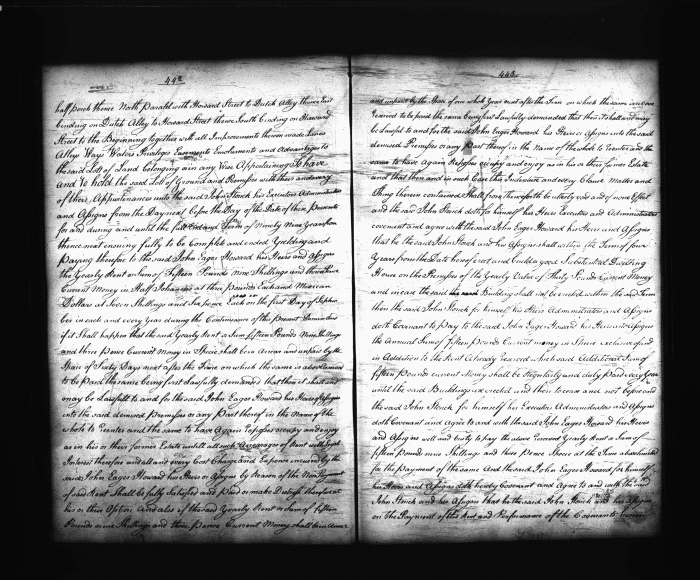 442
half perch thence North Parralel with Howard Street to Dutch Alley thence East
binding on Dutch Alley to Howard Street thence South binding on Howard
Street to the Beginning together with all Improvements thereon made Lanes
Alleys Ways Waters Priviledges Easments Emoluments and Advantages to
the said Lotts of Land belonging or in any Wise Appertaining To have
and to hold the said Lotts of Ground and Premises with their and every
of their Appurtenances unto the said John Stouck his Executors Administrators
and Assigns from the Day next before the Day of the Date of these Presents
for and during and until the full End and Term of Ninety Nine Years from
thence next ensuing fully to be Compleat and ended Yielding and
Paying therefor to the said John Eager Howard his Heirs and Assigns
the Yearly Rent or Sum of Fifteen Pounds Nine Shillings and three Pence
Current Money in Half Johannes at three Pounds Each and Mexican
Dollars at Seven Shillings and Six pence Each on the first Day of Septem
ber in each and every Year during the Continuance of the Present Demise And
if it Shall happen that the said Yearly Rent or Sum fifteen Pounds Nine Shillings
and three Pence Current Money in Specie shall be in Arrear and unpaid by the
Space of Sixty Days next after the Time on which the same is aforementioned
to be Paid the same being first lawfully demanded that then it shall and
may be Lawfull to and for the said John Eager Howard his Heirs or Assigns
into the said demised Premises or any Part thereof in the Name of the
whole to Reenter and the same to have Again Reposses occupy and enjoy
as in his or their former Estate untill all such Arrearages of Rent with Legal
Interest therefore and all and every Cost Charge and Expence incurred by the
said John Eager Howard his Heirs or Assigns by Reason of the Non Payment
of said Rent Shall be fully Satisfied and Paid or make Distress therefor at
his or their Option And also if the said Yearly Rent or Sum of fifteen
Pounds nine Shillings and three Pence Current Money shall be in Arrear
443
and unpaid by the Space of one whole Year next after the Time on which the same is
required to be paid the same being first Lawfully demanded that then it shall and may
be Lawful to and for the said John Eager Howard his Heirs or Assigns into the said
demised Premises or any Part thereof in the Name of the whole to Reenter and the
same to have again Repossess occupy and enjoy as in his or their former Estate
and that then and in such Case this Indenture and every Clause Matter and
Thing therein contained Shall from thenceforth be utterly void and of none Effect
and the said John Stouck doth for himself his Heirs Executors and Administrators
covenant and agree with the said John Eager Howard his Heirs and Assigns
that he the said John Stouck and his Assigns shall within the Term of four
Years from the Date hereof erect and build a good Substantial Dwelling
House on the Premises of the Yearly Value of Thirty Pounds Current Money
and in case the said Building shall not be erected within the said Term
then the said John Stouck for himself his Heirs Administrators and Assigns
doth Covenant to Pay to the said John Eager Howard his Heirs and Assigns
the Annual Sum of Fifteen Pounds Current money in Specie exclusive of and
in Addition to the Rent Already reserved which said Additional Sum of
fifteen Pounds current Money shall be Regularly and duly Paid every Year
until the said Buildings is erected and then to cease and not before and
the said John Stouck for himself his Executors Administrators and Assigns
doth Covenant and Agree to and with the said John Eager Howard his Heirs
and Assigns will and truly to pay the above reserved Yearly Rent or Sum of
fifteen Pounds nine Shillings and three Pence Specie at the Time above limited
for the Payment of the same And the said John Eager Howard for himself
his Heirs and Assigns doth hereby Covenant and Agree to and with the said
John Stouck and his Assigns that he the said John Stouck and his Assigns
on the Payment of the Rent and Performance of the Covenants